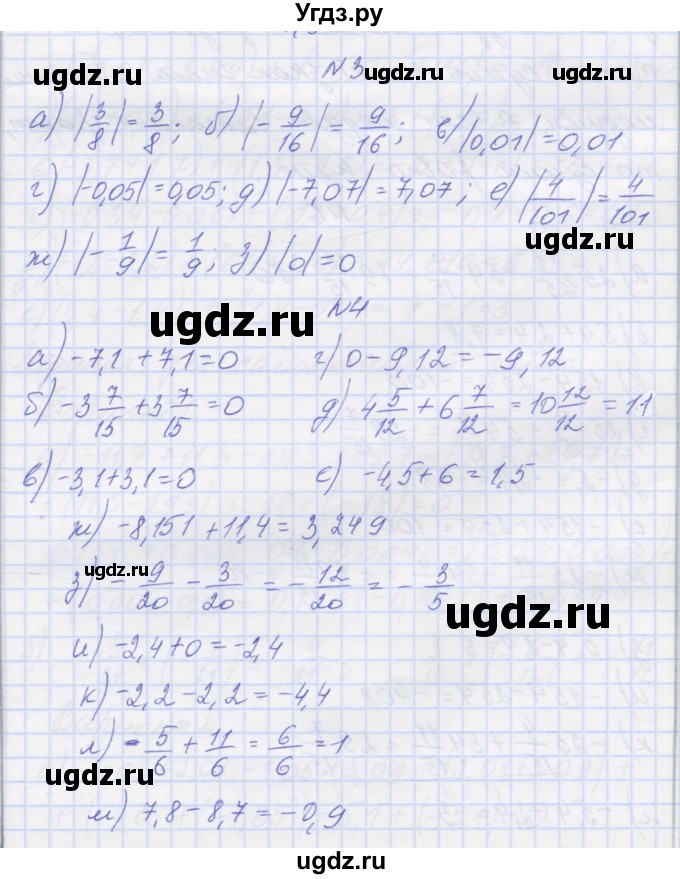 Угдз.ру
ugdz.ru
ugdz.ru
N3
а) |3/8| = 3/8; б) |-9/16| = 9/16; в) |0,01| = 0,01
г) |-0,05| = 0,05; д) |-7,07| = 7,07; е) |4/101| = 4/101
ugdz.ru
ugdz.ru
ж) |-1/9| = 1/9; з) |0| = 0
ugdz.ru
N4
а) -7,1 + 7,1 = 0 г) 0 - 9,12 = -9,12
б) -3 7/15 + 3 7/15 = 0 д) 4 5/12 + 6 7/12 = 10 12/12 = 11
в) -3,1 + 3,1 = 0 е) -4,5 + 6 = 1,5
ugdz.ru
ж) -8,151 + 11,4 = 3,249
ugdz.ru
з) -9/20 - 3/20 = -12/20 = -3/5
ugdz.ru
и) -2,4 + 0 = -2,4
ugdz.ru
к) -2,2 - 2,2 = -4,4
л) -5/6 + 11/6 = 6/6 = 1
ugdz.ru
ugdz.ru
м) 7,8 - 8,7 = -0,9
ugdz.ru